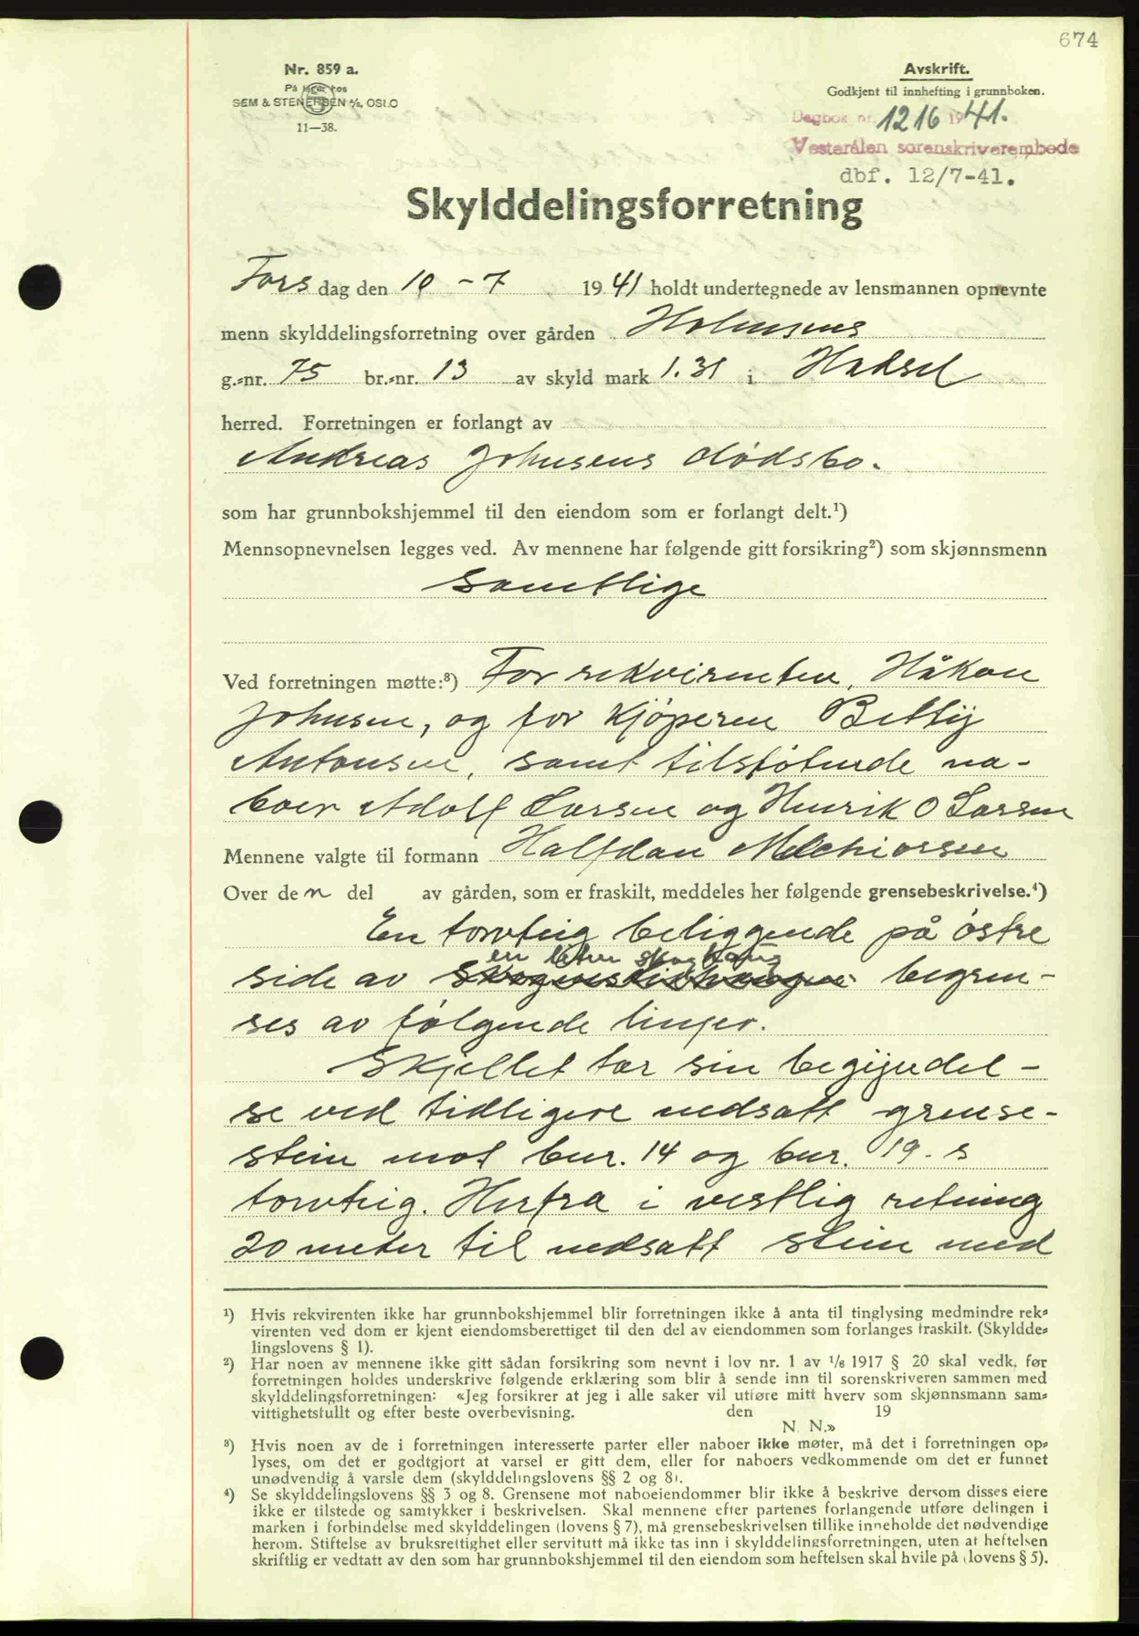 674
Nr. 859 a.
På lager hos
SEM & STENERSEN A/S, OSLO
11—38.
Avskrift.
Godkjent til innhefting i grunnboken.
Dagbok nr. 1216 1941.
Vesterålen sorenskriverembede
dbf. 12/7-41.
Skylddelingsforretning
Tors dag den 10 - 7 1941 holdt undertegnede av lensmannen opnevnte
menn skylddelingsforretning over gården Holmsnes
g.-nr. 75 br.-nr. 13 av skyld mark 1.31 i Hadsel
herred. Forretningen er forlangt av
Andreas Johnsens dødsbo.
som har grunnbokshjemmel til den eiendom som er forlangt delt.¹)
Mennsopnevnelsen legges ved. Av mennene har følgende gitt forsikring²) som skjønnsmenn
Samtlige
Ved forretningen møtte:³) For rekvirenten, Håkon
Johnsen, og for kjöperen Betty
Antonsen, samt tilstötende na-
boer Adolf Larsen og Henrik O Larsen
Mennene valgte til formann Halfdan Melchiorsen
Over den del av gården, som er fraskilt, meddeles her følgende grensebeskrivelse.⁴)
En torvteig beliggende på östre
en liten skog haug
side av begren-
ses av følgende linjer.
Skjellet tar sin begijndel-
se ved tidligere nedsatt grense-
stein mot bnr. 14 og bnr. 19.s
torvteig. Herfra i vestlig retning
20 meter til nedsatt stein med
¹) Hvis rekvirenten ikke har grunnbokshjemmel blir forretningen ikke å anta til tinglysing medmindre rek-
virenten ved dom er kjent eiendomsberettiget til den del av eiendommen som forlanges fraskilt. (Skyldde-
lingslovens § 1).
²) Har noen av mennene ikke gitt sådan forsikring som nevnt i lov nr. 1 av 1/6 1917 § 20 skal vedk. før
forretningen holdes underskrive følgende erklæring som blir å sende inn til sorenskriveren sammen med
skylddelingsforretningen: «Jeg forsikrer at jeg i alle saker vil utføre mitt hverv som skjønnsmann sam-
vittighetsfullt og efter beste overbevisning. den 19
N. N.»
³) Hvis noen av de i forretningen interesserte parter eller naboer ikke møter, må det i forretningen op-
lyses, om det er godtgjort at varsel er gitt dem, eller for naboers vedkommende om det er funnet
unødvendig å varsle dem (skylddelingslovens §§ 2 og 8).
⁴) Se skylddelingslovens §§ 3 og 8. Grensene mot naboeiendommer blir ikke å beskrive dersom disses eiere
ikke er tilstede og samtykker i beskrivelsen. Skal mennene efter partenes forlangende utføre delingen i
marken i forbindelse med skylddelingen (lovens § 7), må grensebeskrivelsen tillike inneholde det nødvendige
herom. Stiftelse av bruksrettighet eller servitutt må ikke tas inn i skylddelingsforretningen, uten at heftelsen
skriftlig er vedtatt av den som har grunnbokshjemmel til den eiendom som heftelsen skal hvile på (lovens § 5).